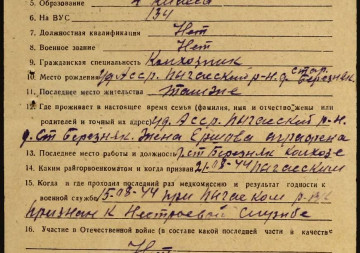 5. Образование 4 класса
6. На ВУС 134
7. Должностная квалификация Нет
8. Военное звание Нет
9. Гражданская специальность Колхозник
10. Место рождения Уд. Асср. Пычасский р-н. д. Стар. Березняк.
11. Последнее место жительства Татже
12. Где проживает в настоящее время семья (фамилия, имя и отчество жены или
родителей и точный их адрес) Уд. Асср. Пычасский р-н.
д. Ст Березняк. Жена Ершова Аграфена
13. Последнее место работы и должность д. Ст Березняк Колхозе
14. Каким райгорвоенкоматом и когда призван 21-08-44 Пычасским
15. Когда и где проходил последний раз медкомиссию и результат годности к
военной службе 15-08-44 при Пычаском р-
признан к Нестроевой Службе
16. Участие в Отечественной войне (в составе какой последней части и качестве
Нет